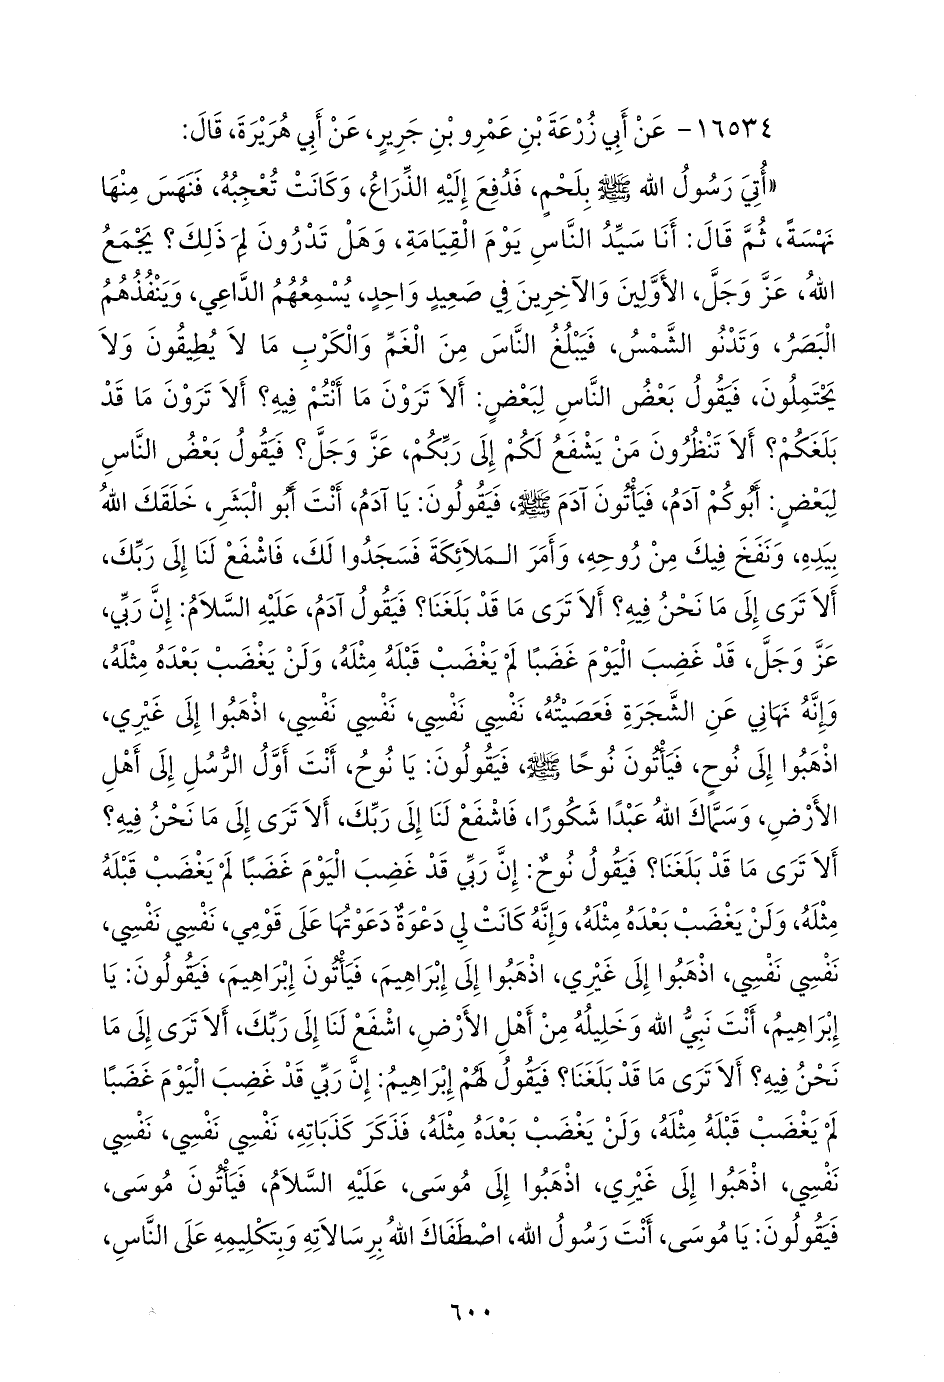 ١٦٥٣٤- عَنْ أَبِي زُرْعَةَ بْنِ عَمْرِو بْنِ جَرِيرٍ، عَنْ أَبِي هُرَيْرَةَ، قَالَ:
«أُتِيَ رَسُولُ الله ﷺ بِلَحْمٍ، فَدُفِعَ إِلَيْهِ الذِّرَاعُ، وَكَانَتْ تُعْجِبُهُ، فَنَهَسَ مِنْهَا
نَهْسَةً، ثُمَّ قَالَ: أَنَا سَيِّدُ النَّاسِ يَوْمَ الْقِيَامَةِ، وَهَلْ تَدْرُونَ لِمَ ذَلِكَ؟ يَجْمَعُ
اللهُ، عَزَّ وَجَلَّ، الأَوَّلِينَ وَالآخِرِينَ فِي صَعِيدٍ وَاحِدٍ، يُسْمِعُهُمُ الدَّاعِي، وَيَنْفُذُهُمُ
الْبَصَرُ، وَتَدْنُو الشَّمْسُ، فَيَبْلُغُ النَّاسَ مِنَ الْغَمِّ وَالْكَرْبِ مَا لاَ يُطِيقُونَ وَلاَ
يَحْتَمِلُونَ، فَيَقُولُ بَعْضُ النَّاسِ لِبَعْضٍ: أَلاَ تَرَوْنَ مَا أَنْتُمْ فِيهِ؟ أَلاَ تَرَوْنَ مَا قَدْ
بَلَغَكُمْ؟ أَلاَ تَنْظُرُونَ مَنْ يَشْفَعُ لَكُمْ إِلَى رَبِّكُمْ، عَزَّ وَجَلَّ؟ فَيَقُولُ بَعْضُ النَّاسِ
لِبَعْضٍ: أَبُوكُمْ آدَمُ، فَيَأْتُونَ آدَمَ ﷺ، فَيَقُولُونَ: يَا آدَمُ، أَنْتَ أَبُو الْبَشَرِ، خَلَقَكَ اللهُ
بِيَدِهِ، وَنَفَخَ فِيكَ مِنْ رُوحِهِ، وَأَمَرَ الـمَلاَئِكَةَ فَسَجَدُوا لَكَ، فَاشْفَعْ لَنَا إِلَى رَبِّكَ،
أَلاَ تَرَى إِلَى مَا نَحْنُ فِيهِ؟ أَلاَ تَرَى مَا قَدْ بَلَغَنَا؟ فَيَقُولُ آدَمُ، عَلَيْهِ السَّلاَمُ: إِنَّ رَبِّي،
عَزَّ وَجَلَّ، قَدْ غَضِبَ الْيَوْمَ غَضَبًا لَمْ يَغْضَبْ قَبْلَهُ مِثْلَهُ، وَلَنْ يَغْضَبْ بَعْدَهُ مِثْلَهُ،
وَإِنَّهُ نَهَانِي عَنِ الشَّجَرَةِ فَعَصَيْتُهُ، نَفْسِي نَفْسِي، نَفْسِي نَفْسِي، اذْهَبُوا إِلَى غَيْرِي،
اذْهَبُوا إِلَى نُوحٍ، فَيَأْتُونَ نُوحًا ﷺ، فَيَقُولُونَ: يَا نُوحُ، أَنْتَ أَوَّلُ الرُّسُلِ إِلَى أَهْلِ
الأَرْضِ، وَسَمَّاكَ اللهُ عَبْدًا شَكُورًا، فَاشْفَعْ لَنَا إِلَى رَبِّكَ، أَلاَ تَرَى إِلَى مَا نَحْنُ فِيهِ؟
أَلاَ تَرَى مَا قَدْ بَلَغَنَا؟ فَيَقُولُ نُوحٌ: إِنَّ رَبِّي قَدْ غَضِبَ الْيَوْمَ غَضَبًا لَمْ يَغْضَبْ قَبْلَهُ
مِثْلَهُ، وَلَنْ يَغْضَبْ بَعْدَهُ مِثْلَهُ، وَإِنَّهُ كَانَتْ لِي دَعْوَةٌ دَعَوْتُهَا عَلَى قَوْمِي، نَفْسِي نَفْسِي،
نَفْسِي نَفْسِي، اذْهَبُوا إِلَى غَيْرِي، اذْهَبُوا إِلَى إِبْرَاهِيمَ، فَيَأْتُونَ إِبْرَاهِيمَ، فَيَقُولُونَ: يَا
إِبْرَاهِيمُ، أَنْتَ نَبِيُّ الله وَخَلِيلُهُ مِنْ أَهْلِ الأَرْضِ، اشْفَعْ لَنَا إِلَى رَبِّكَ، أَلاَ تَرَى إِلَى مَا
نَحْنُ فِيهِ؟ أَلاَ تَرَى مَا قَدْ بَلَغَنَا؟ فَيَقُولُ لَهُمْ إِبْرَاهِيمُ: إِنَّ رَبِّي قَدْ غَضِبَ الْيَوْمَ غَضَبًا
لَمْ يَغْضَبْ قَبْلَهُ مِثْلَهُ، وَلَنْ يَغْضَبْ بَعْدَهُ مِثْلَهُ، فَذَكَرَ كَذَبَاتِهِ، نَفْسِي نَفْسِي، نَفْسِي
نَفْسِي، اذْهَبُوا إِلَى غَيْرِي، اذْهَبُوا إِلَى مُوسَى، عَلَيْهِ السَّلاَمُ، فَيَأْتُونَ مُوسَى،
فَيَقُولُونَ: يَا مُوسَى، أَنْتَ رَسُولُ الله، اصْطَفَاكَ اللهُ بِرِسَالاَتِهِ وَبِتَكْلِيمِهِ عَلَى النَّاسِ،
٦٠٠